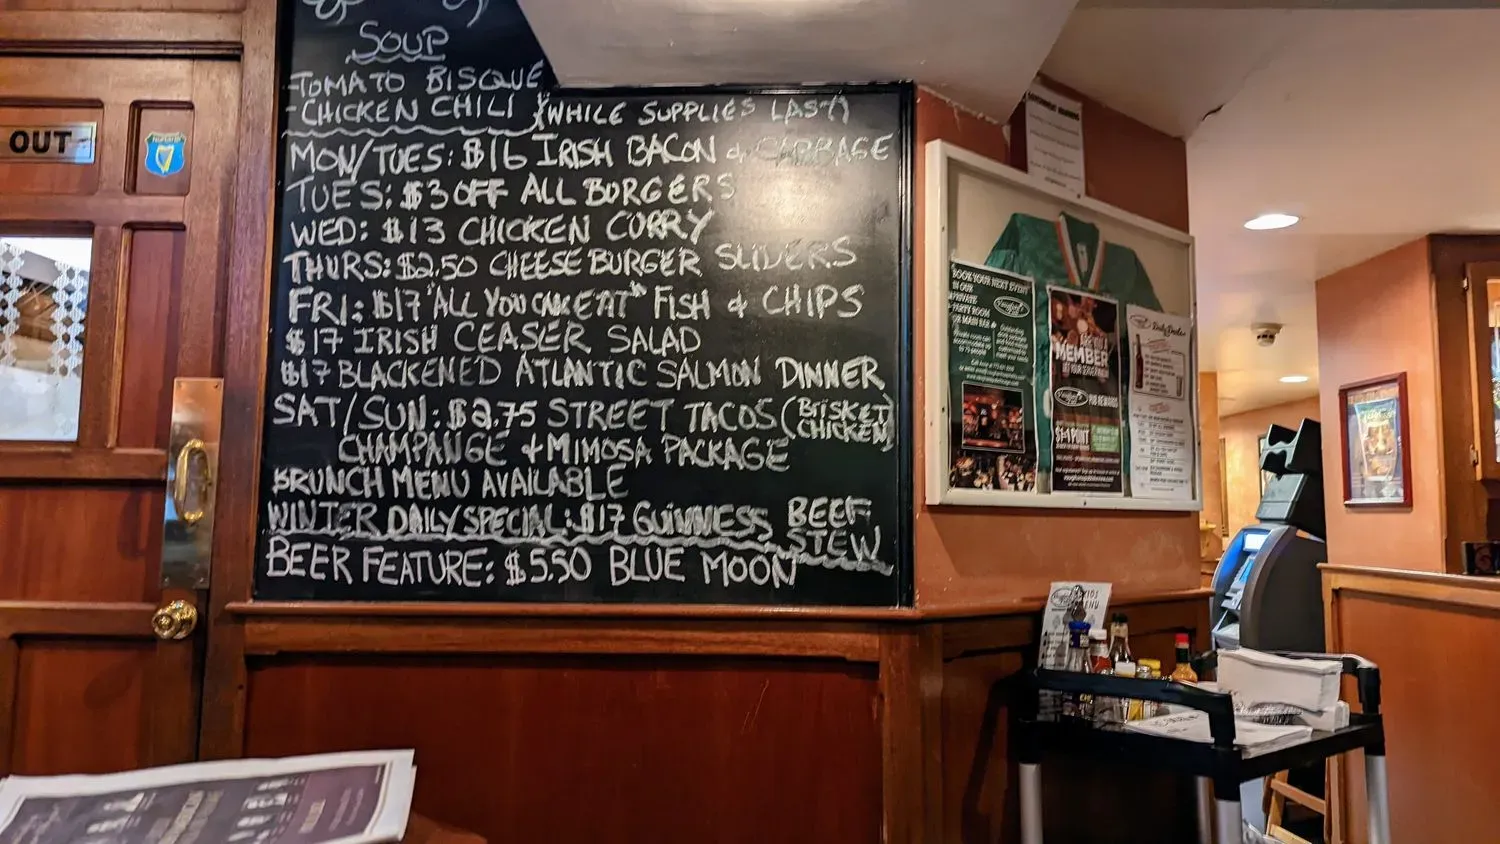 SOUP
-TOMATO BISQUE
-CHICKEN CHILI (WHILE SUPPLIES LAST)
MON/TUES: $16 IRISH BACON & CABBAGE
TUES: $3 OFF ALL BURGERS
WED: $13 CHICKEN CURRY
THURS: $2.50 CHEESEBURGER SLIDERS
FRI: $17 "ALL YOU CAN EAT" FISH & CHIPS
$17 IRISH CEASER SALAD
$17 BLACKENED ATLANTIC SALMON DINNER
SAT/SUN: $2.75 STREET TACOS (BRISKET, CHICKEN)
CHAMPANGE & MIMOSA PACKAGE
BRUNCH MENU AVAILABLE
WINTER DAILY SPECIAL: $17 GUINNESS BEEF STEW
BEER FEATURE: $5.50 BLUE MOON
OUT
BOOK YOUR NEXT EVENT
IN OUR
PRIVATE
PARTY ROOM
OR MAIN BAR
MEMBER
PUB REWARDS
$1=1 POINT
Daily Deals
KIDS
MENU